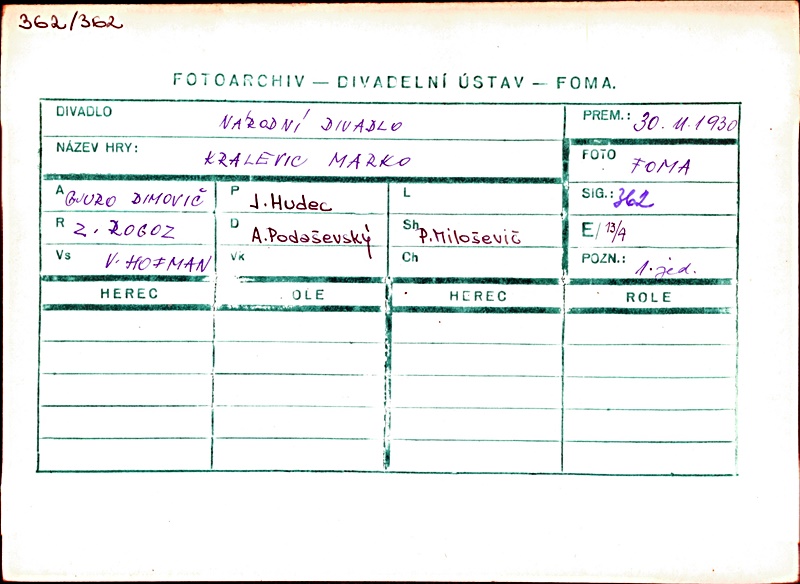 362/362
FOTOARCHIV — DIVADELNÍ ÚSTAV — FOMA.
DIVADLO NÁRODNÍ DIVADLO PREM.: 30. 11. 1930
NÁZEV HRY: KRALEVIC MARKO FOTO FOMA
A GJURO DIMOVIČ P J. Hudec L SIG.: 362
R Z. ROGOZ D A. Podaševský Sh P. Miloševič E/ 13/A
Vs V. HOFMAN Vk Ch POZN.: 1. jed.
HEREC OLE HEREC ROLE